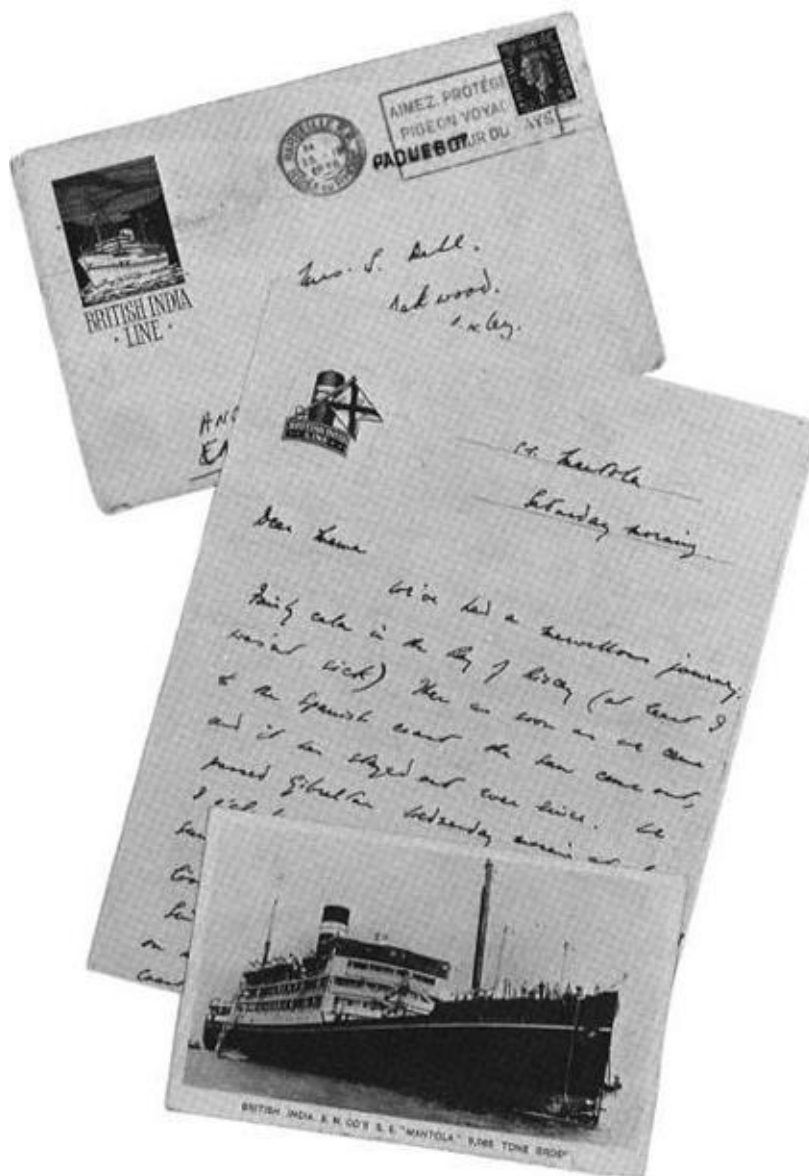 AIMEZ, PROTÉGE
PIGEON VOYAG
PAQUEBOT
UR DU PAYS
BRITISH INDIA
· LINE ·
Mrs. S. Dahl.
Oakwood.
Bexley.
BRITISH INDIA
LINE
s.s. Mantola
Saturday morning.
Dear Mama
We've had a marvellous journey.
Fairly calm in the Bay of Biscay (at least I
wasn't sick) Then as soon as we came
to the Spanish coast the sun came out,
and it has stayed out ever since. We
passed Gibraltar Wednesday morning at
BRITISH INDIA S. N. CO'S S. S. "MANTOLA" 9,065 TONS GROSS